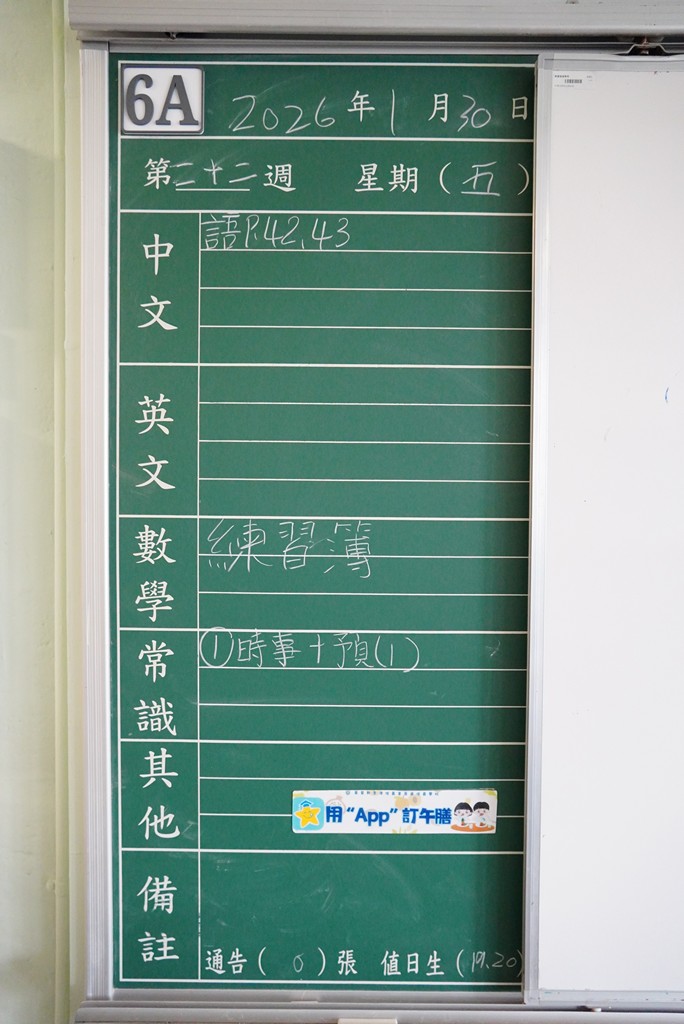 6A 2026年1月30日
第二十二週 星期(五)
中文 語P.42,43
英文
數學 練習簿
常識 ①時事+預(1)
其他
用“App”訂午膳
備註
通告(0)張 值日生(19.20)